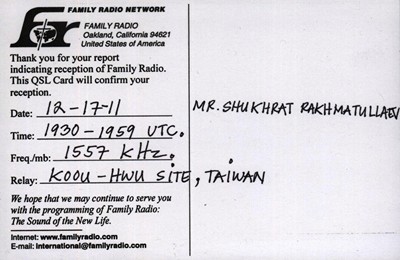 FAMILY RADIO NETWORK
FAMILY RADIO
Oakland, California 94621
United States of America
Thank you for your report
indicating reception of Family Radio.
This QSL Card will confirm your
reception.
Date: 12-17-11
MR. SHUKHRAT RAKHMATULLAEV
Time: 1930-1959 UTC.
Freq./mb: 1557 KHz.
Relay: KOOU-HWU SITE, TAIWAN
We hope that we may continue to serve you
with the programming of Family Radio:
The Sound of the New Life.
Internet: www.familyradio.com
E-mail: international@familyradio.com